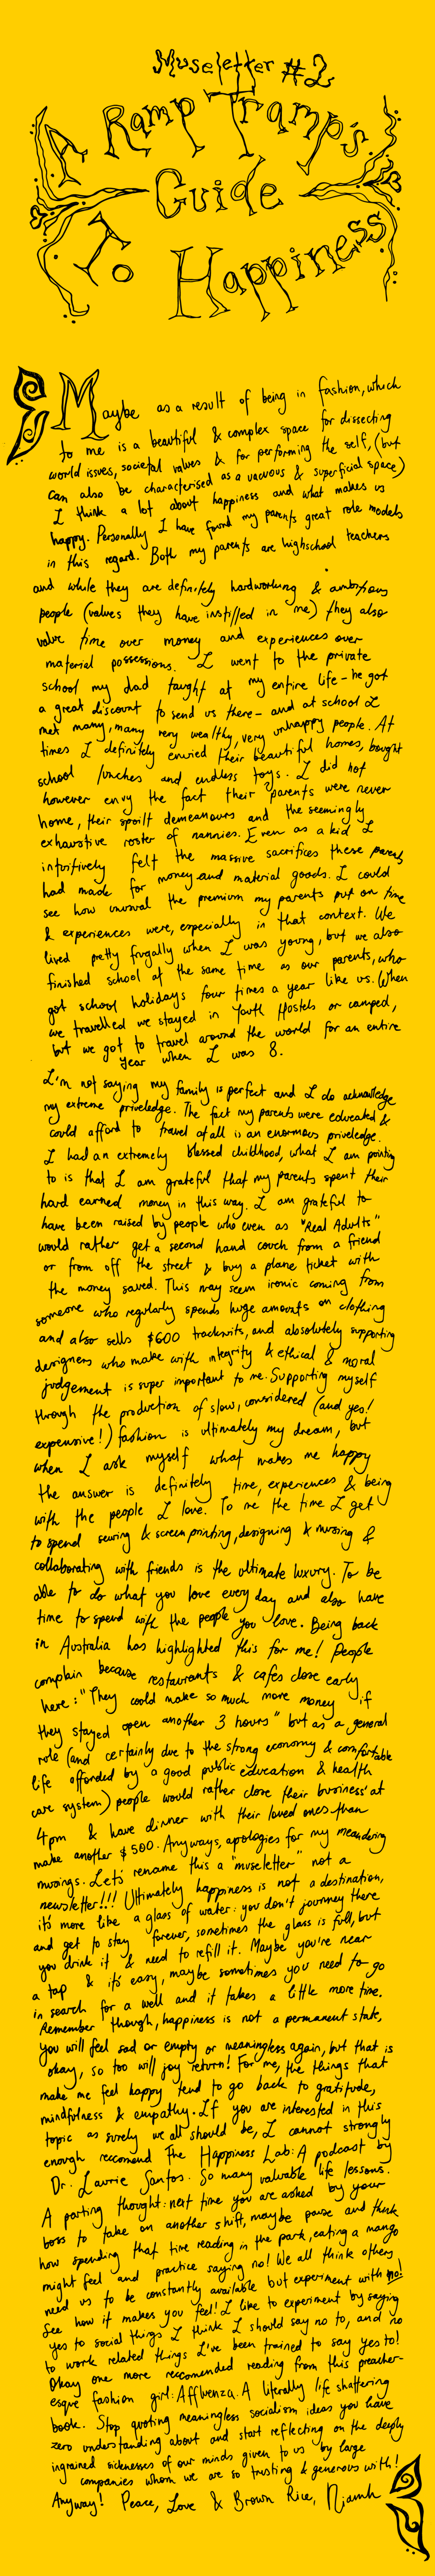 Museletter #2
A Ramp Tramp's
Guide
To Happiness
Maybe as a result of being in fashion, which
to me is a beautiful & complex space for dissecting
world issues, societal values & for performing the self, (but
can also be characterised as a vacuous & superficial space)
I think a lot about happiness and what makes us
happy. Personally I have found my parents great role models
in this regard. Both my parents are highschool teachers
and while they are definitely hardworking & ambitious
people (values they have instilled in me) they also
value time over money and experiences over
material possessions. I went to the private
school my dad taught at my entire life - he got
a great discount to send us there - and at school I
met many, many very wealthy, very unhappy people. At
times I definitely envied their beautiful homes, bought
school lunches and endless toys. I did not
however envy the fact their parents were never
home, their spoilt demeanours and the seemingly
exhaustive roster of nannies. Even as a kid I
intuitively felt the massive sacrifices these parents
had made for money and material goods. I could
see how unusual the premium my parents put on time
& experiences were, especially in that context. We
lived pretty frugally when I was young, but we also
finished school at the same time as our parents, who
got school holidays four times a year like us. When
we travelled we stayed in Youth Hostels or camped,
but we got to travel around the world for an entire
year when I was 8.
I'm not saying my family is perfect and I do acknowledge
my extreme priveledge. The fact my parents were educated &
could afford to travel at all is an enormous priveledge.
I had an extremely blessed childhood, what I am pointing
to is that I am grateful that my parents spent their
hard earned money in this way. I am grateful to
have been raised by people who even as "Real Adults"
would rather get a second hand couch from a friend
or from off the street & buy a plane ticket with
the money saved. This may seem ironic coming from
someone who regularly spends huge amounts on clothing
and also sells $600 tracksuits, and absolutely supporting
designers who make with integrity & ethical & moral
judgement is super important to me. Supporting myself
through the production of slow, considered (and yes!
expensive!) fashion is ultimately my dream, but
when I ask myself what makes me happy
the answer is definitely time, experiences & being
with the people I love. To me the time I get
to spend sewing & screen printing, designing & musing &
collaborating with friends is the ultimate luxury. To be
able to do what you love every day and also have
time to spend with the people you love. Being back
in Australia has highlighted this for me! People
complain because restaurants & cafes close early
here: "They could make so much more money if
they stayed open another 3 hours" but as a general
role (and certainly due to the strong economy & comfortable
life afforded by a good public education & health
care system) people would rather close their business at
4pm & have dinner with their loved ones than
make another $500. Anyways, apologies for my meandering
musings. Let's rename this a "museletter" not a
newsletter!!! Ultimately happiness is not a destination,
it's more like a glass of water: you don't journey there
and get to stay forever, sometimes the glass is full, but
you drink it & need to refill it. Maybe you're near
a tap & it's easy, maybe sometimes you need to go
in search for a well and it takes a little more time.
Remember though, happiness is not a permanent state,
you will feel sad or empty or meaningless again, but that is
okay, so too will joy return! For me, the things that
make me feel happy tend to go back to gratitude,
mindfulness & empathy. If you are interested in this
topic as surely we all should be, I cannot strongly
enough reccomend The Happiness Lab: A podcast by
Dr. Laurie Santos. So many valuable life lessons.
A parting thought: next time you are asked by your
boss to take on another shift, maybe pause and think
how spending that time reading in the park, eating a mango
might feel and practice saying no! We all think others
need us to be constantly available but experiment with no!
See how it makes you feel! I like to experiment by saying
yes to social things I think I should say no to, and no
to work related things I've been trained to say yes to!
Okay one more reccomended reading from this preacher-
esque fashion girl: Affluenza. A literally life shattering
book. Stop quoting meaningless socialism ideas you have
zero understanding about and start reflecting on the deeply
ingrained sicknesses of our minds given to us by large
companies whom we are so trusting & generous with!
Anyway! Peace, Love & Brown Rice, Niamh